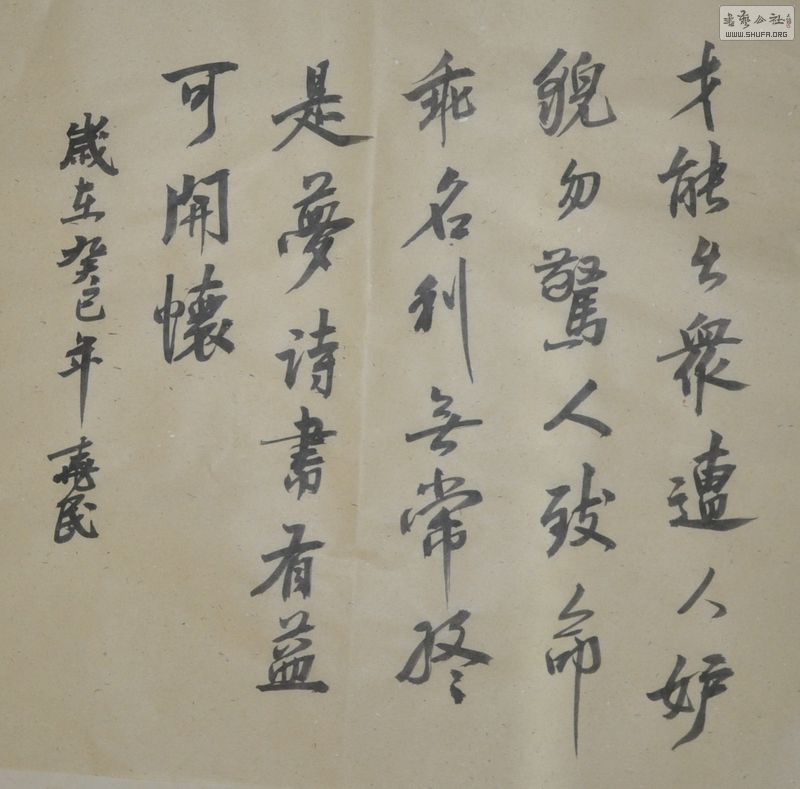 才能出衆遭人妒
貌勿驚人致命
乖名利無常終
是夢詩書有益
可開懷
歲在癸巳年 堯民
書藝公社
WWW.SHUFA.ORG